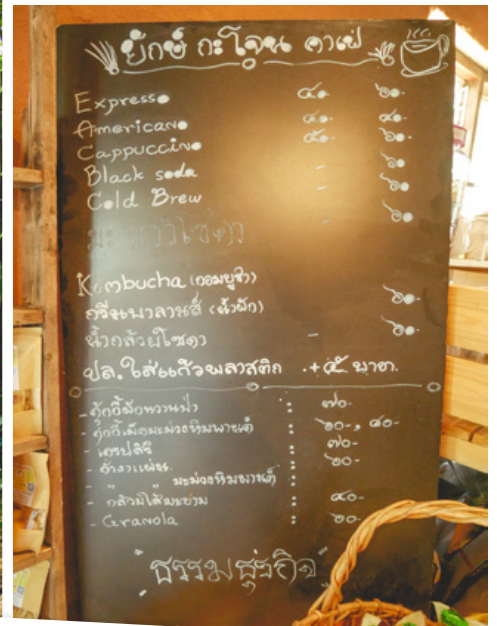 ยักษ์ กะโจน คาเฟ่
Expresso ๔๐- ๖๐-
Americano ๔๐- ๔๐-
Cappuccino ๔๐- ๖๐-
Black soda - ๖๐-
Cold Brew - ๖๐-
Kombucha (คอมบูชา)
กรีนบาลานส์ (น้ำผัก) ๖๐-
น้ำกล้วยโซดา - ๖๐-
ปล. ใส่แก้วพลาสติก .+ ๕ บาท.
- คุ้กกี้ผักหวานป่า : ๗๐-
- คุ้กกี้เม็ดมะม่วงหิมพานต์ : ๖๐-, ๘๐-
- :  ๗๐-
- ข้าวแผ่น : ๖๐-
- " มะม่วงหิมพานต์ :
- : ๔๐-
- Granola : ๖๐-
"ธรรมธุรกิจ"